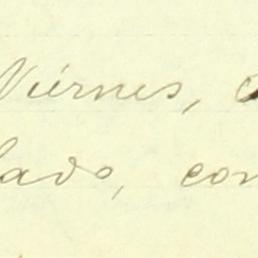 Viérnes,
lado, con